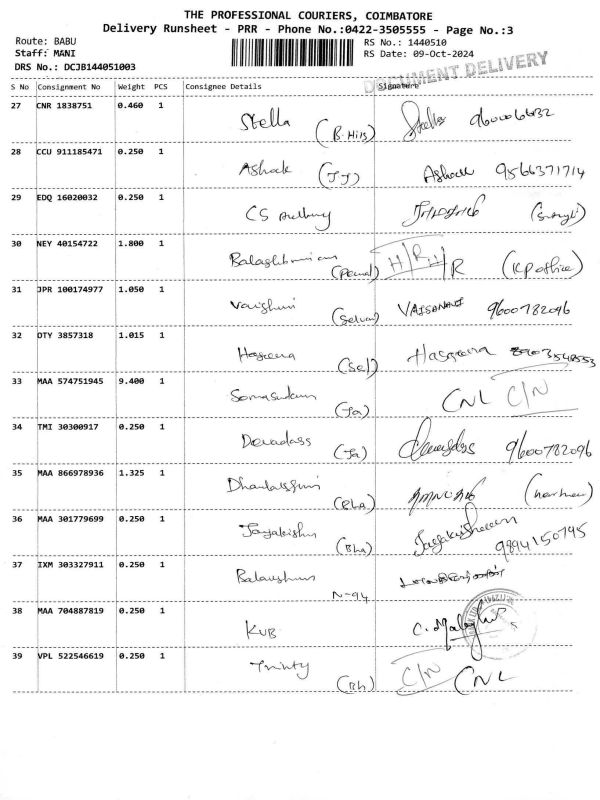 THE PROFESSIONAL COURIERS, COIMBATORE
Delivery Runsheet - PRR - Phone No.:0422-3505555 - Page No.:3
Route: BABU
Staff: MANI
DRS No.: DCJB144051003
RS No.: 1440510
RS Date: 09-Oct-2024
DOCUMENT DELIVERY
S No Consignment No Weight PCS Consignee Details Signature
27 CNR 1838751 0.460 1 Stella (B.Hills) Stella
28 CCU 911185471 0.250 1 Ashock (JJ) Ashock 9566371714
29 EDQ 16020032 0.250 1 CS
30 NEY 40154722 1.800 1 H/R H/R (KP office)
31 JPR 100174977 1.050 1 (Selvan) 9600782096
32 OTY 3857318 1.015 1 Haseena (Sel) Haseena
33 MAA 574751945 9.400 1 Somasundaram (Ja) CNL C/N
34 TMI 30300917 0.250 1 Devadass (Ja) 9600782096
35 MAA 866978936 1.325 1 (Bha)
36 MAA 301779699 0.250 1 (Bha) 9894150795
37 IXM 303327911 0.250 1 N-94
38 MAA 704887819 0.250 1 KVB
39 VPL 522546619 0.250 1 Trinity (Bh) C/N CNL